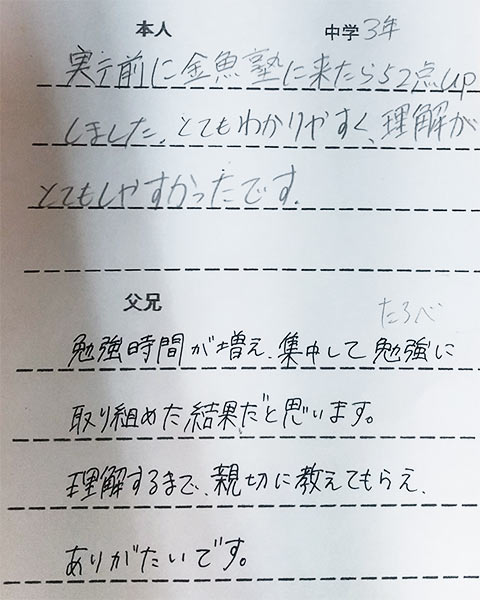 本人 中学3年
実テ前に金魚塾に来たら52点up
しました。とてもわかりやすく、理解が
とてもしやすかったです。
父兄
たろべ
勉強時間が増え、集中して勉強に
取り組めた結果だと思います。
理解するまで、親切に教えてもらえ、
ありがたいです。